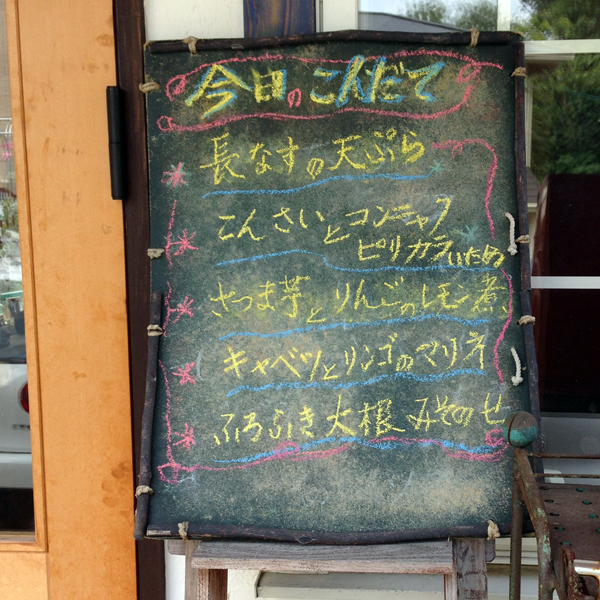 今日のこんだて
長なすの天ぷら
こんさいとコンニャク
ピリカラいため
さつま芋とりんごのレモン煮
キャベツとリンゴのマリネ
ふろふき大根みそのせ